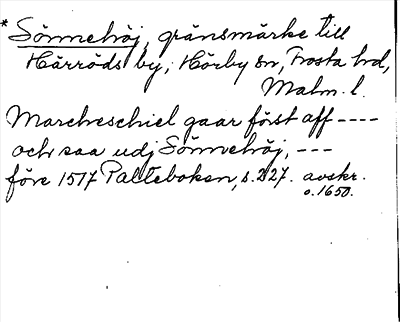 *Sönnehöj, gränsmärke till
Härröds by, Hörby sn, Frosta hd,
Malm. l.
Marcheschiel gaar först aff ----
och saa udj Sönnehöj, ---
före 1517 Palteboken, s. 227. avskr.
o. 1650.